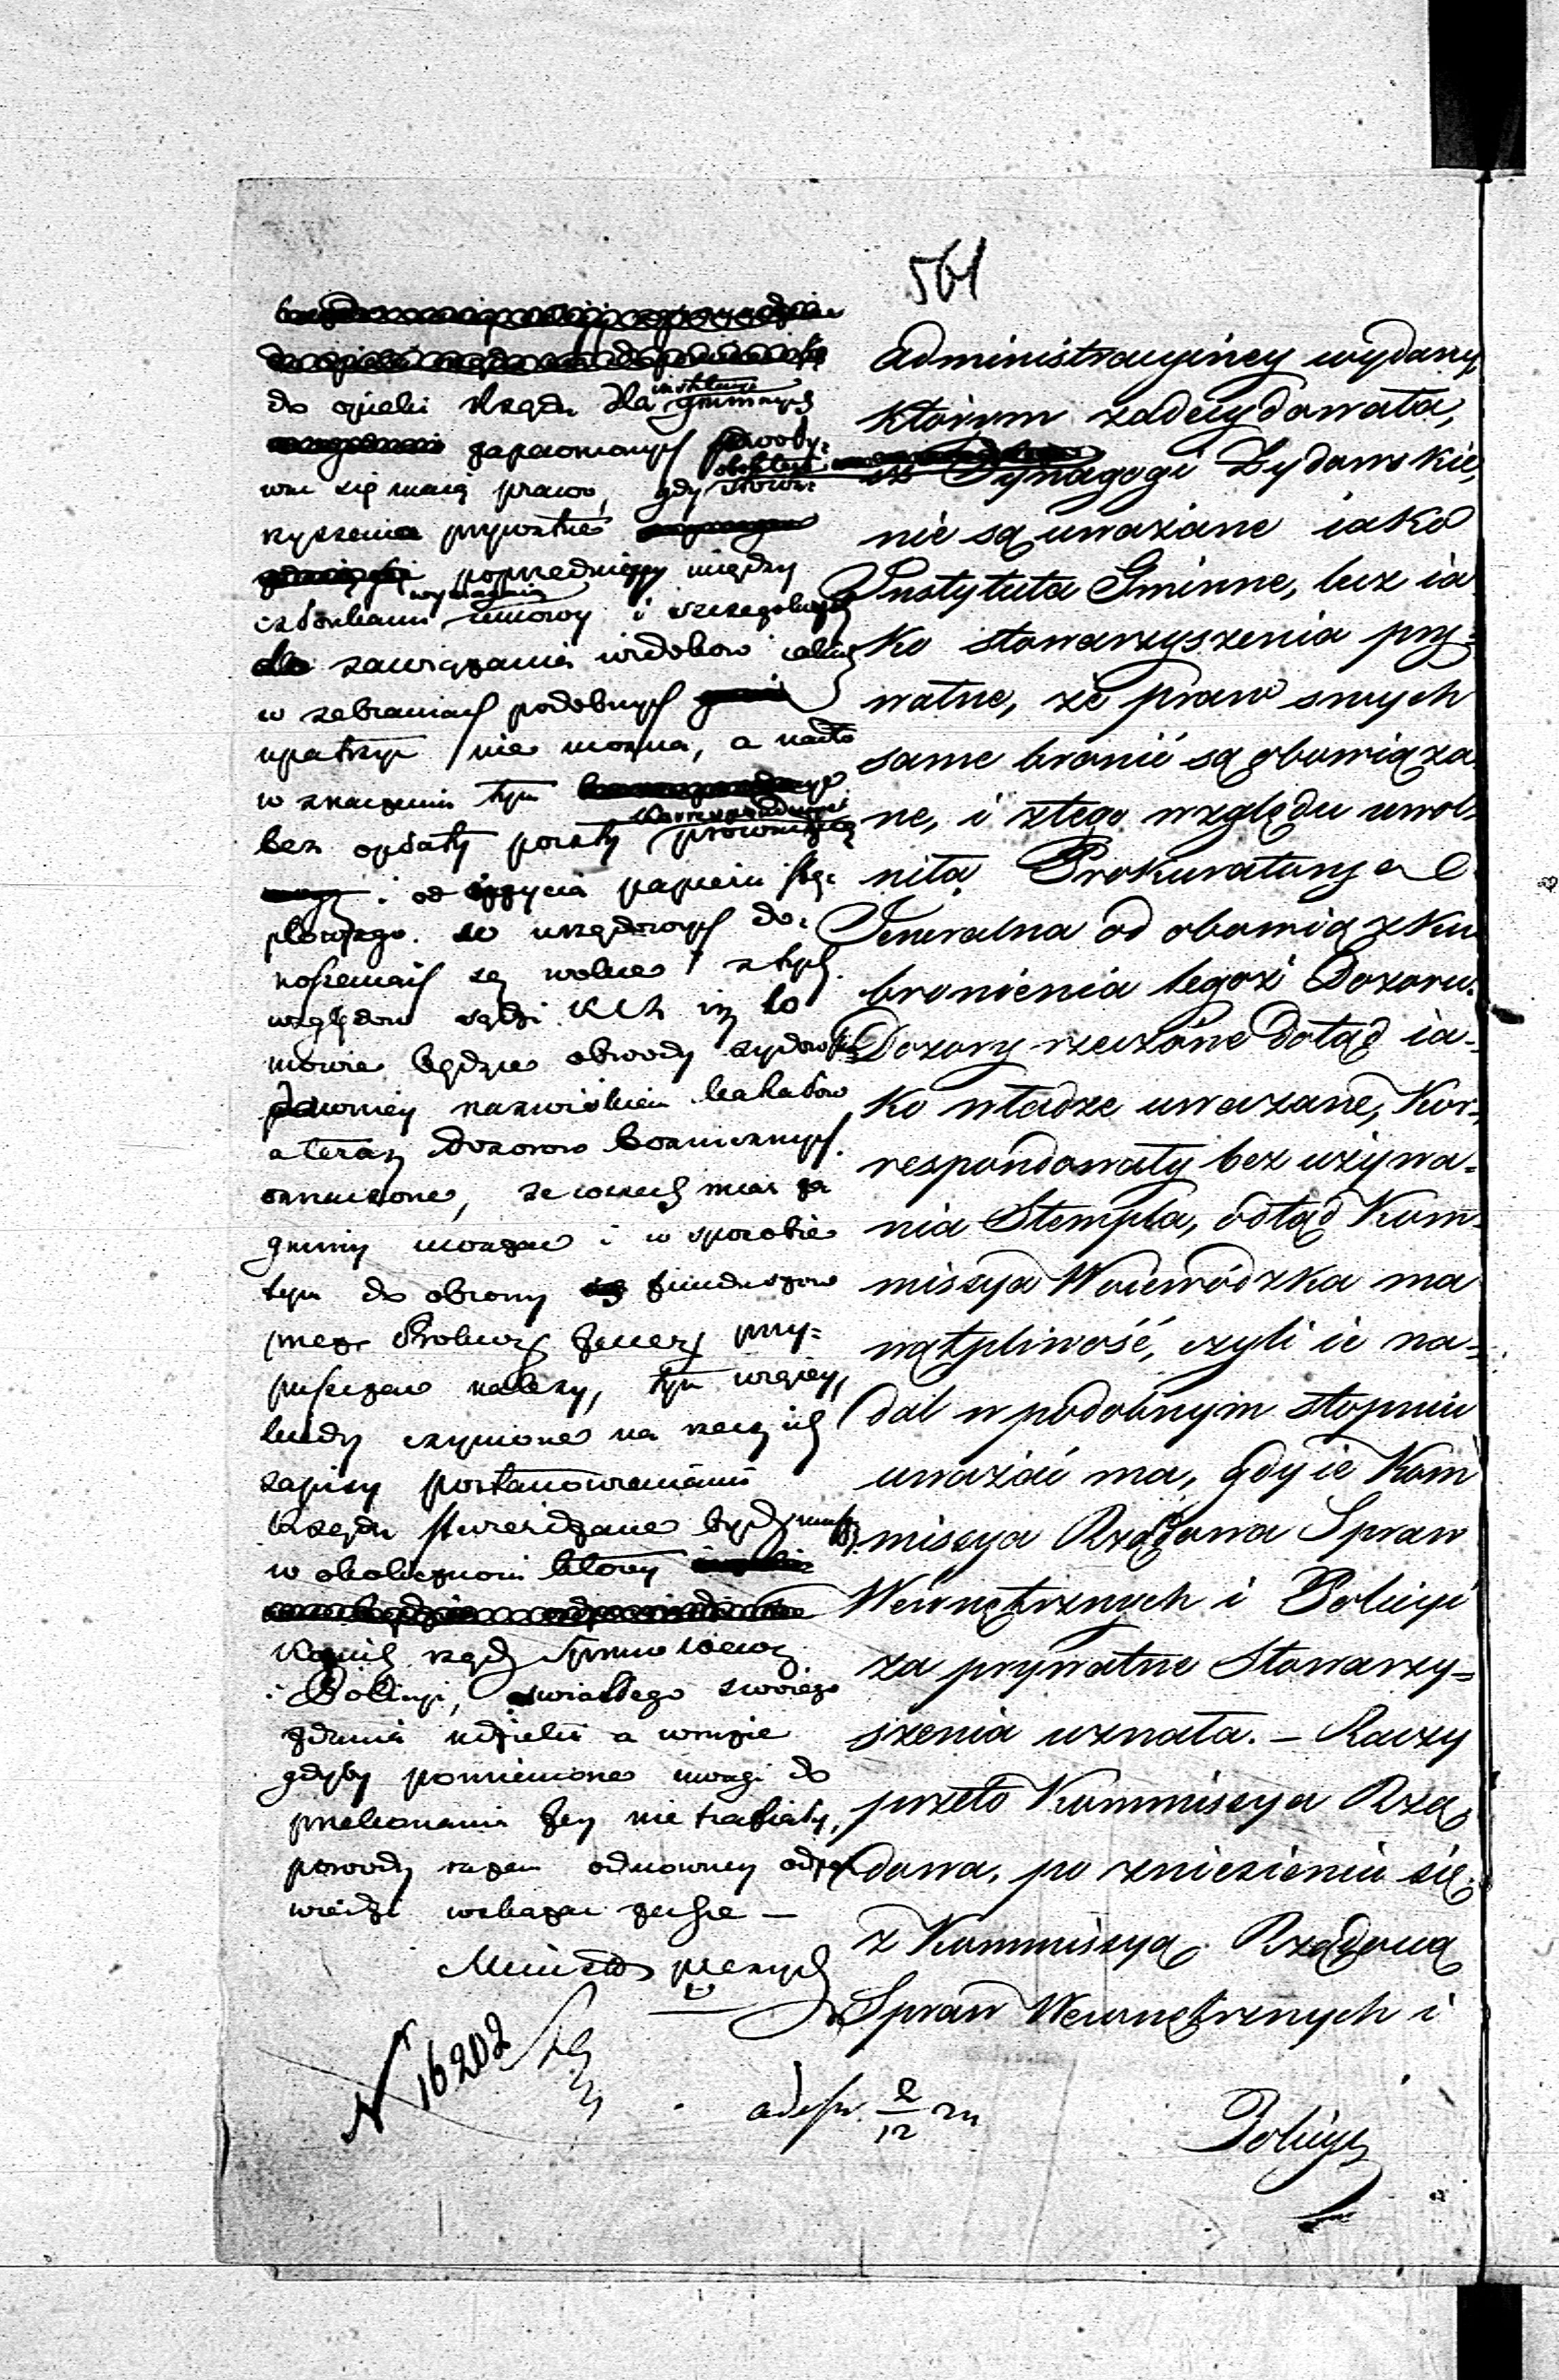 561
do opieki Rządu dla instytucyi gminnych
zapewnionych powoły-
wać się maią prawo, gdy
rzyszenia prywatne
poprzedniczey między
członkami wymagaią umowy i szczególnych
zawiązania widoków iakich
w zebraniach podobnych
upatrzyć nie można, a nadto
w znaczeniu tym
bez opłaty poczty prowadzą
i od użycia papieru stę-
plowego w urzędowych do-
noszeniach są wolne z tych
względów sądzi KRz iż to
mowa będzie obwody żydowskie
dawniey nazwiskiem kahałów
a teraz Dozorów bożniczych
oznaczone, ze wszech miar za
gminy uważać i w sposobie
tym do obrony funduszów
przez Prokur Jener przy-
puszczać należy, tym więcey,
kiedy czynione na rzecz ich
zapisy postanowieniami
Rządu stwierdzane bydź muszą
w okoliczności którey
Kommis rządz Spraw Wewn
i Policyi, światłego swoiego
zdania udzieli a w razie
gdyby pomienione uwagi do
przekonania Jey nie trafiały,
powody razem odmowney odpo-
wiedzi wskazać zechce —
Minister prezyd
N 16202
administracyiney wydany,
którym zadecydowała,
iż Synagogi Żydowskie,
nie są uważane iako
Instytuta Gminne, lecz ia
ko stowarzyszenia pry-
watne, że praw swych
same bronić są obowiąza
ne, i z tego względu uwol-
niła Prokuratorya
Jeneralna od obowiązku
bronienia tegoż Dozoru.
Dozory rzeczone dotąd ia-
ko władze uważane, Kor-
respondowały bez używa-
nia Stempla, odtąd Kom-
missya Woiewódzka ma
wątpliwość, czyli ie na-
dal w podobnym stopniu
uważać ma, gdy ie Kom
missya Rządowa Spraw
Wewnętrznych i Policyi
za prywatne Stowarzy-
szenia uznała. — Raczy
przeto Kommissya Rzą
dowa, po zniesieniu się
z Kommissyą Rządową
Spraw Wewnętrznych i
Policyi